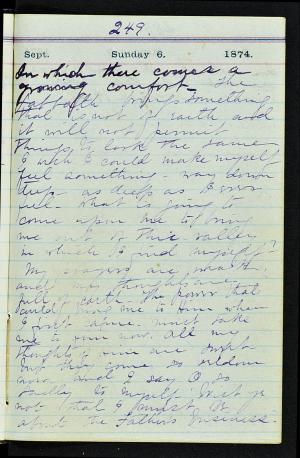 249.
Sept. Sunday 6. 1874.
In which there comes a
growing comfort - The
something
that is not of earth and
it will not permit
things to look the same
I wish I could make myself
feel something - way down
deep - as deep as I ever
What is going to
come upon me to bring
me out of this valley
in which I find myself?
My prayers are weak
and my thoughts are
full of earth - the power that
could bring me to Him when
I first came must take
me to Him now. All my
thoughts of Him are sweet
but they come so seldom
now and I say O so
to myself Wist ye
not that I must be
about the Fathers business."